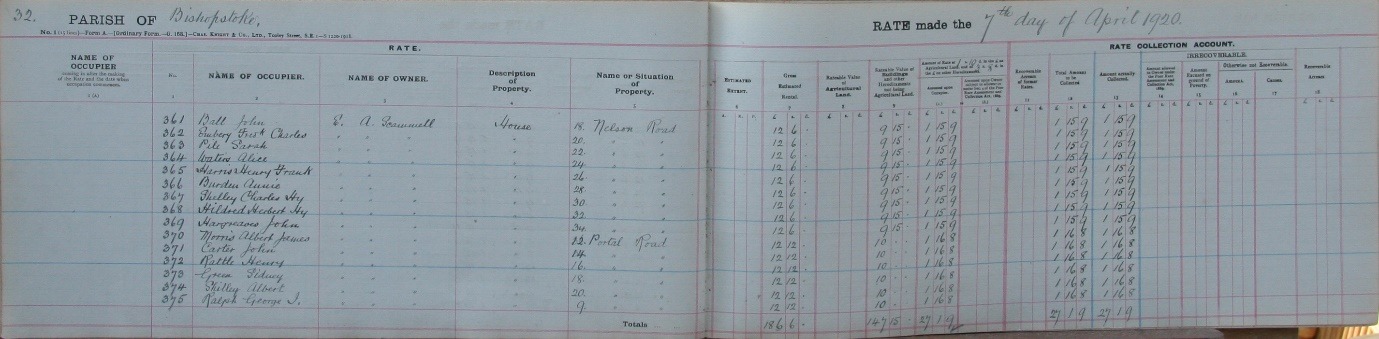 32. PARISH OF Bishopstoke. RATE made the 7th day of April 1920.
RATE. RATE COLLECTION ACCOUNT.
IRRECOVERABLE.
NAME OF OCCUPIER No. NAME OF OCCUPIER. NAME OF OWNER. Description of Property. Name or Situation of Property. ESTIMATED EXTENT. Gross Estimated Rental. Rateable Value of Agricultural Land. Total Amount to be Collected Amount actually Collected.
361 Ball John E. A. Scammell House 18. Nelson Road 12 6 - 9 15 - 1 15 9 1 15 9 1 15 9
362 Embery Fredk Charles " " " " 20. " " 12 6 - 9 15 - 1 15 9 1 15 9 1 15 9
363 Pile Sarah " " " " 22. " " 12 6 - 9 15 - 1 15 9 1 15 9 1 15 9
364 Waters Alice " " " " 24. " " 12 6 - 9 15 - 1 15 9 1 15 9 1 15 9
365 Harris Henry Frank " " " " 26 " " 12 6 - 9 15 - 1 15 9 1 15 9 1 15 9
366 Burden Annie " " " " 28 " " 12 6 - 9 15 - 1 15 9 1 15 9 1 15 9
367 Shelley Charles Hy " " " " 30 " " 12 6 - 9 15 - 1 15 9 1 15 9 1 15 9
368 Hildred Herbert Hy " " " " 32. " " 12 6 - 9 15 - 1 15 9 1 15 9 1 15 9
369 Hargreaves John " " " " 34. " " 12 6 - 9 15 - 1 15 9 1 15 9 1 15 9
370 Morris Albert James " " " " 12. Portal Road 12 12 - 10 - - 1 16 8 1 16 8 1 16 8
371 Carter John " " " " 14. " " 12 12 - 10 - - 1 16 8 1 16 8 1 16 8
372 Rattle Henry " " " " 16. " " 12 12 - 10 - - 1 16 8 1 16 8 1 16 8
373 Green Sidney " " " " 18. " " 12 12 - 10 - - 1 16 8 1 16 8 1 16 8
374 Shelley Albert " " " " 20. " " 12 12 - 10 - - 1 16 8 1 16 8 1 16 8
375 Ralph George J. " " " " 9. " " 12 12 - 10 - - 1 16 8 1 16 8 1 16 8
Totals 186 6 - 147 15 - 27 1 9 27 1 9 27 1 9